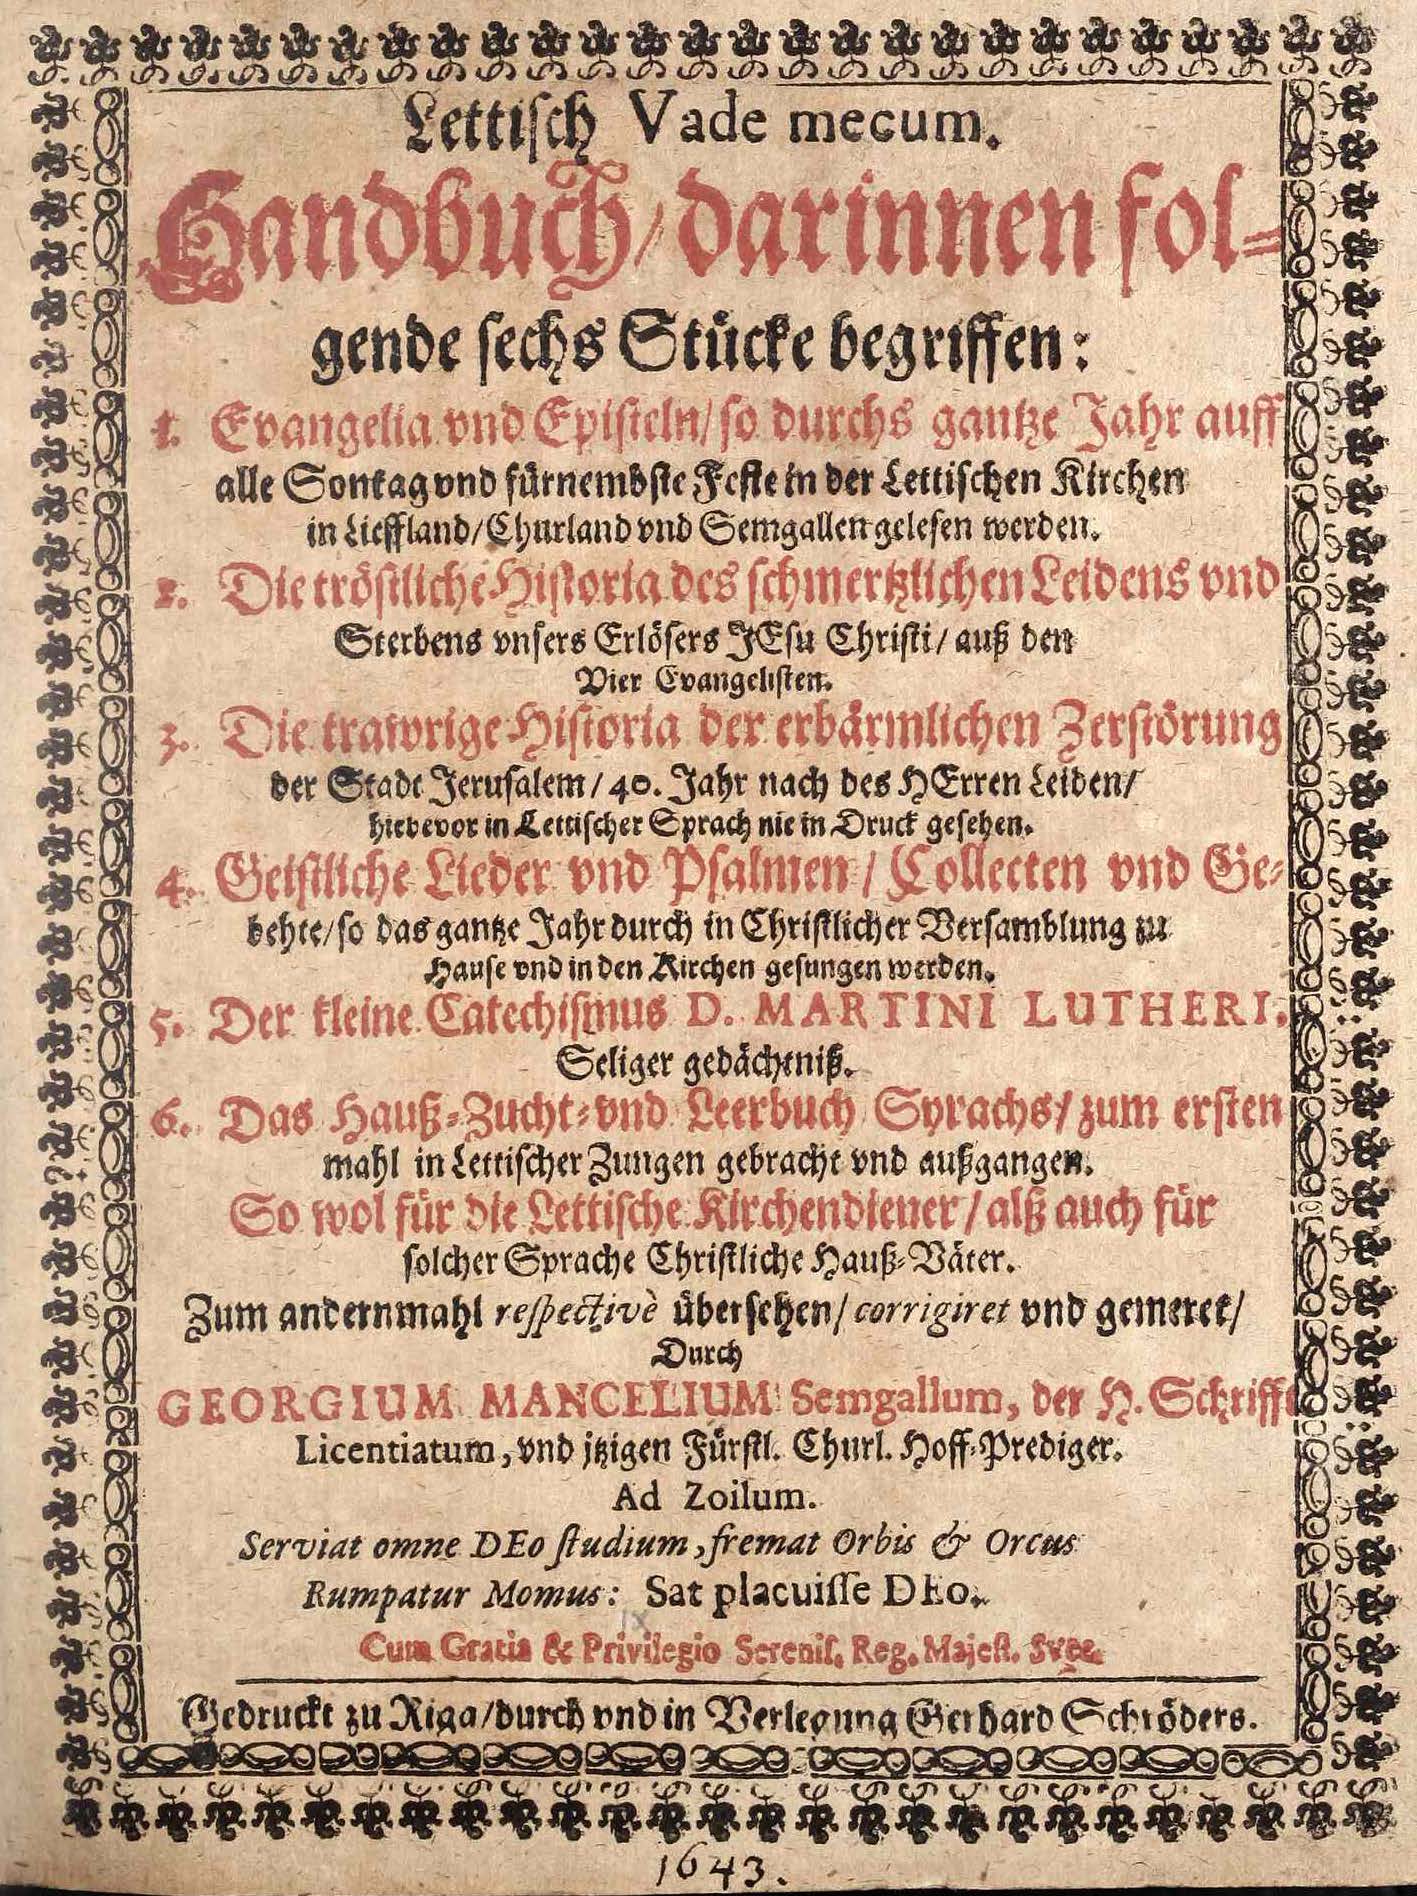 Lettisch Vade mecum.
Handbuch/darinnen fol-
gende sechs Stücke begriffen:
1. Evangelia vnd Episteln/so durchs gantze Jahr auff
alle Sontag vnd fürnembste Feste in der Lettischen Kirchen
in Lieffland/Churland vnd Semgallen gelesen werden.
2. Die tröstliche Historia des schmertzlichen Leidens vnd
Sterbens vnsers Erlösers JEsu Christi/ auß den
Vier Evangelisten.
3. Die trawrige Historia der erbärmlichen Zerstörung
der Stadt Jerusalem/ 40. Jahr nach des HErren Leiden/
hiebevor in Lettischer Sprach nie in Druck gesehen.
4. Geistliche Lieder vnd Psalmen/ Collecten vnd Ge-
behte/so das gantze Jahr durch in Christlicher Versamblung zu
Hause vnd in den Kirchen gesungen werden.
5. Der kleine Catechismus D. MARTINI LUTHERI.
Seliger gedächtniß.
6. Das Hauß-Zucht-vnd Leerbuch Syrachs/ zum ersten
mahl in Lettischer Zungen gebracht vnd außgangen.
So wol für die Lettische Kirchendiener/ alß auch für
solcher Sprache Christliche Hauß-Väter.
Zum andernmahl respectivè übersehen/ corrigiret vnd gemeret/
Durch
GEORGIUM MANCELIUM Semgallum, der H. Schrifft
Licentiatum, vnd jtzigen Fürstl. Churl. Hoff-Prediger.
Ad Zoilum.
Serviat omne DEo studium, fremat Orbis & Orcus
Rumpatur Momus: Sat placuisse DEo.
Cum Gratia & Privilegio Sereniss. Reg. Majest. Svec.
Gedruckt zu Riga/durch vnd in Verlegung Gerhard Schröders.
1643.